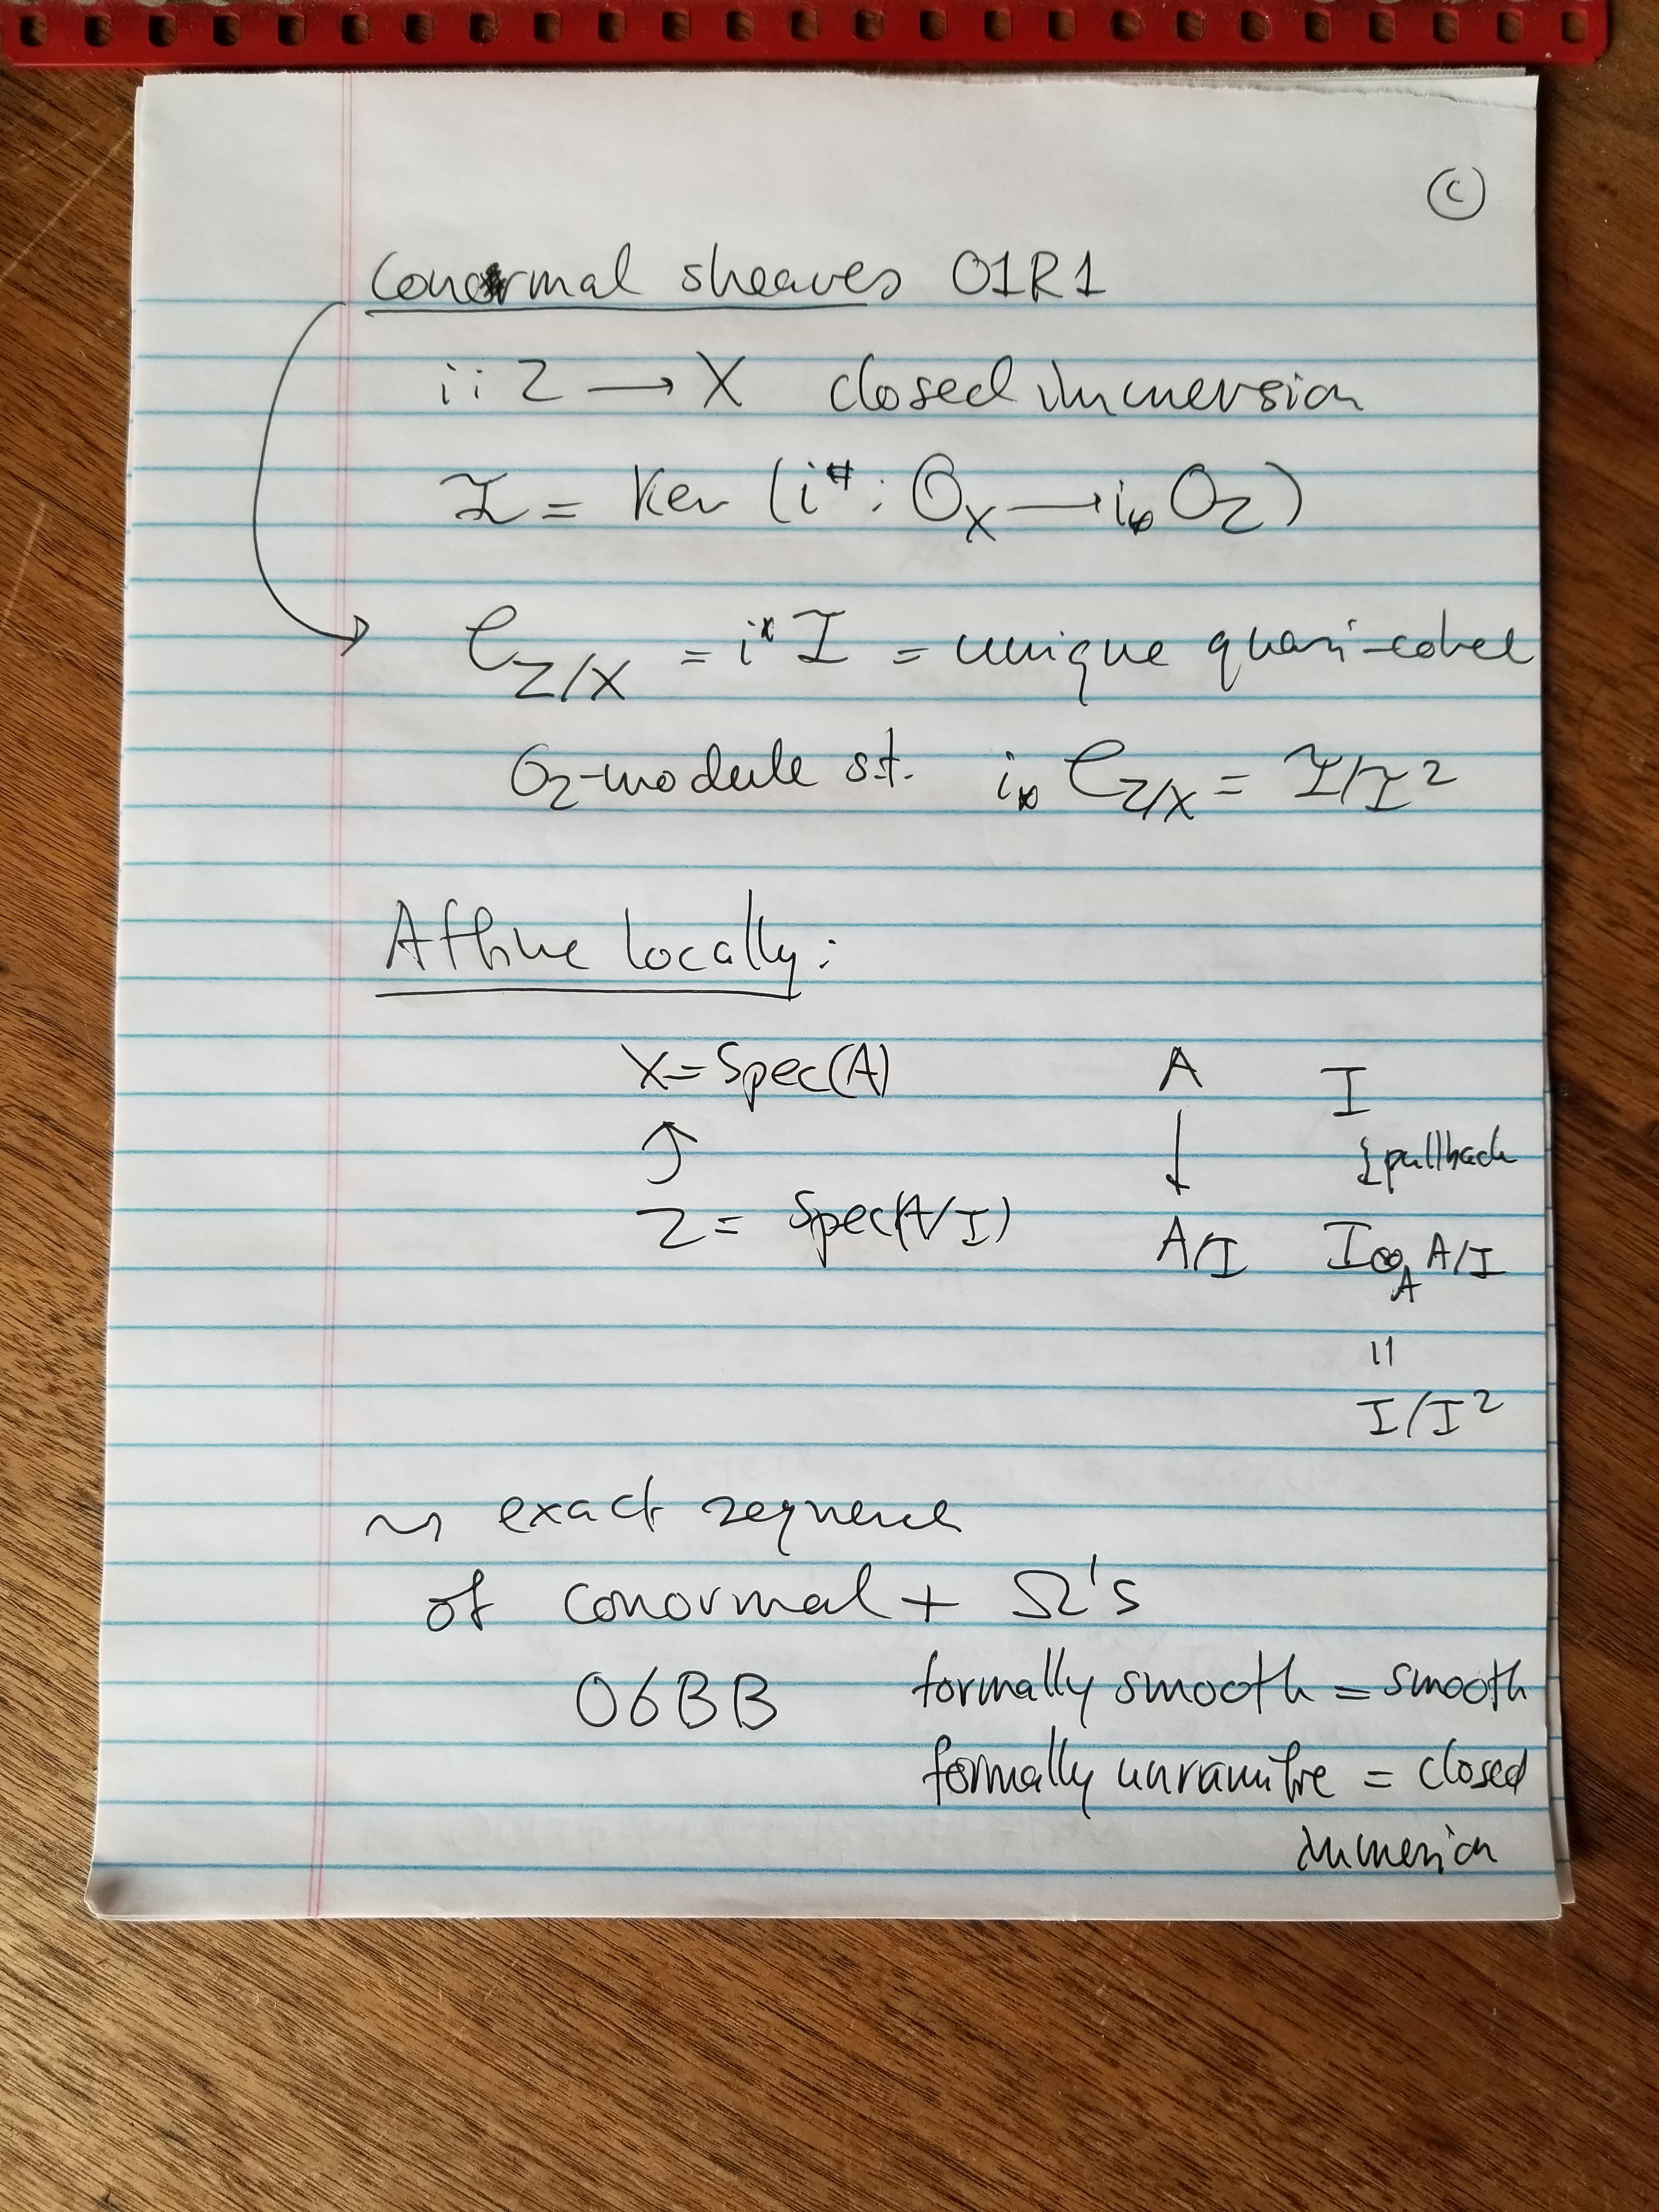 Ⓒ
Conormal sheaves 01R1
i : Z → X closed immersion
𝓘 = Ker (i^# : O_X → i_* O_Z)
𝒞_{Z/X} = i^* 𝓘 = unique quasi-cohel
O_Z-module s.t. i_* 𝒞_{Z/X} = 𝓘/𝓘^2
Affine locally:
X = Spec(A) A I
↑ ↓ pullback
Z = Spec(A/I) A/I I ⊗_A A/I
=
I/I^2
⇝ exact sequence
of conormal + Ω's
06BB formally smooth = smooth
formally unramifre = closed
immersion